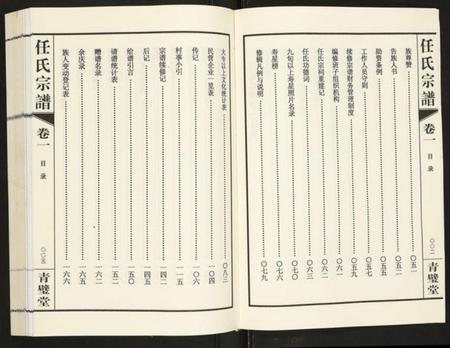 任氏宗譜
卷一
目录
〇〇二
青璧堂
族尊赞 〇五一
告族人书 〇五二
助资条例 〇五五
工作人员守则 〇五七
续修宗谱财务管理制度 〇五九
编修班子组织机构 〇六一
任氏宗祠重建记 〇六二
任氏功德词 〇六三
九旬以上寿星照片名录
寿星榜 〇七七
修辑凡例与说明 〇七九
大专以上文化统计表 〇八三
民营企业一览表 一〇四
传记 一〇六
村事小引 一一五
宗谱续修记 一四二
后记 一四五
绘谱引言 一五〇
请谱统计表 一五二
赠谱名录 一六二
余庆录 一六五
族人变动登记表 一六六
任氏宗譜
卷一
目录
青璧堂